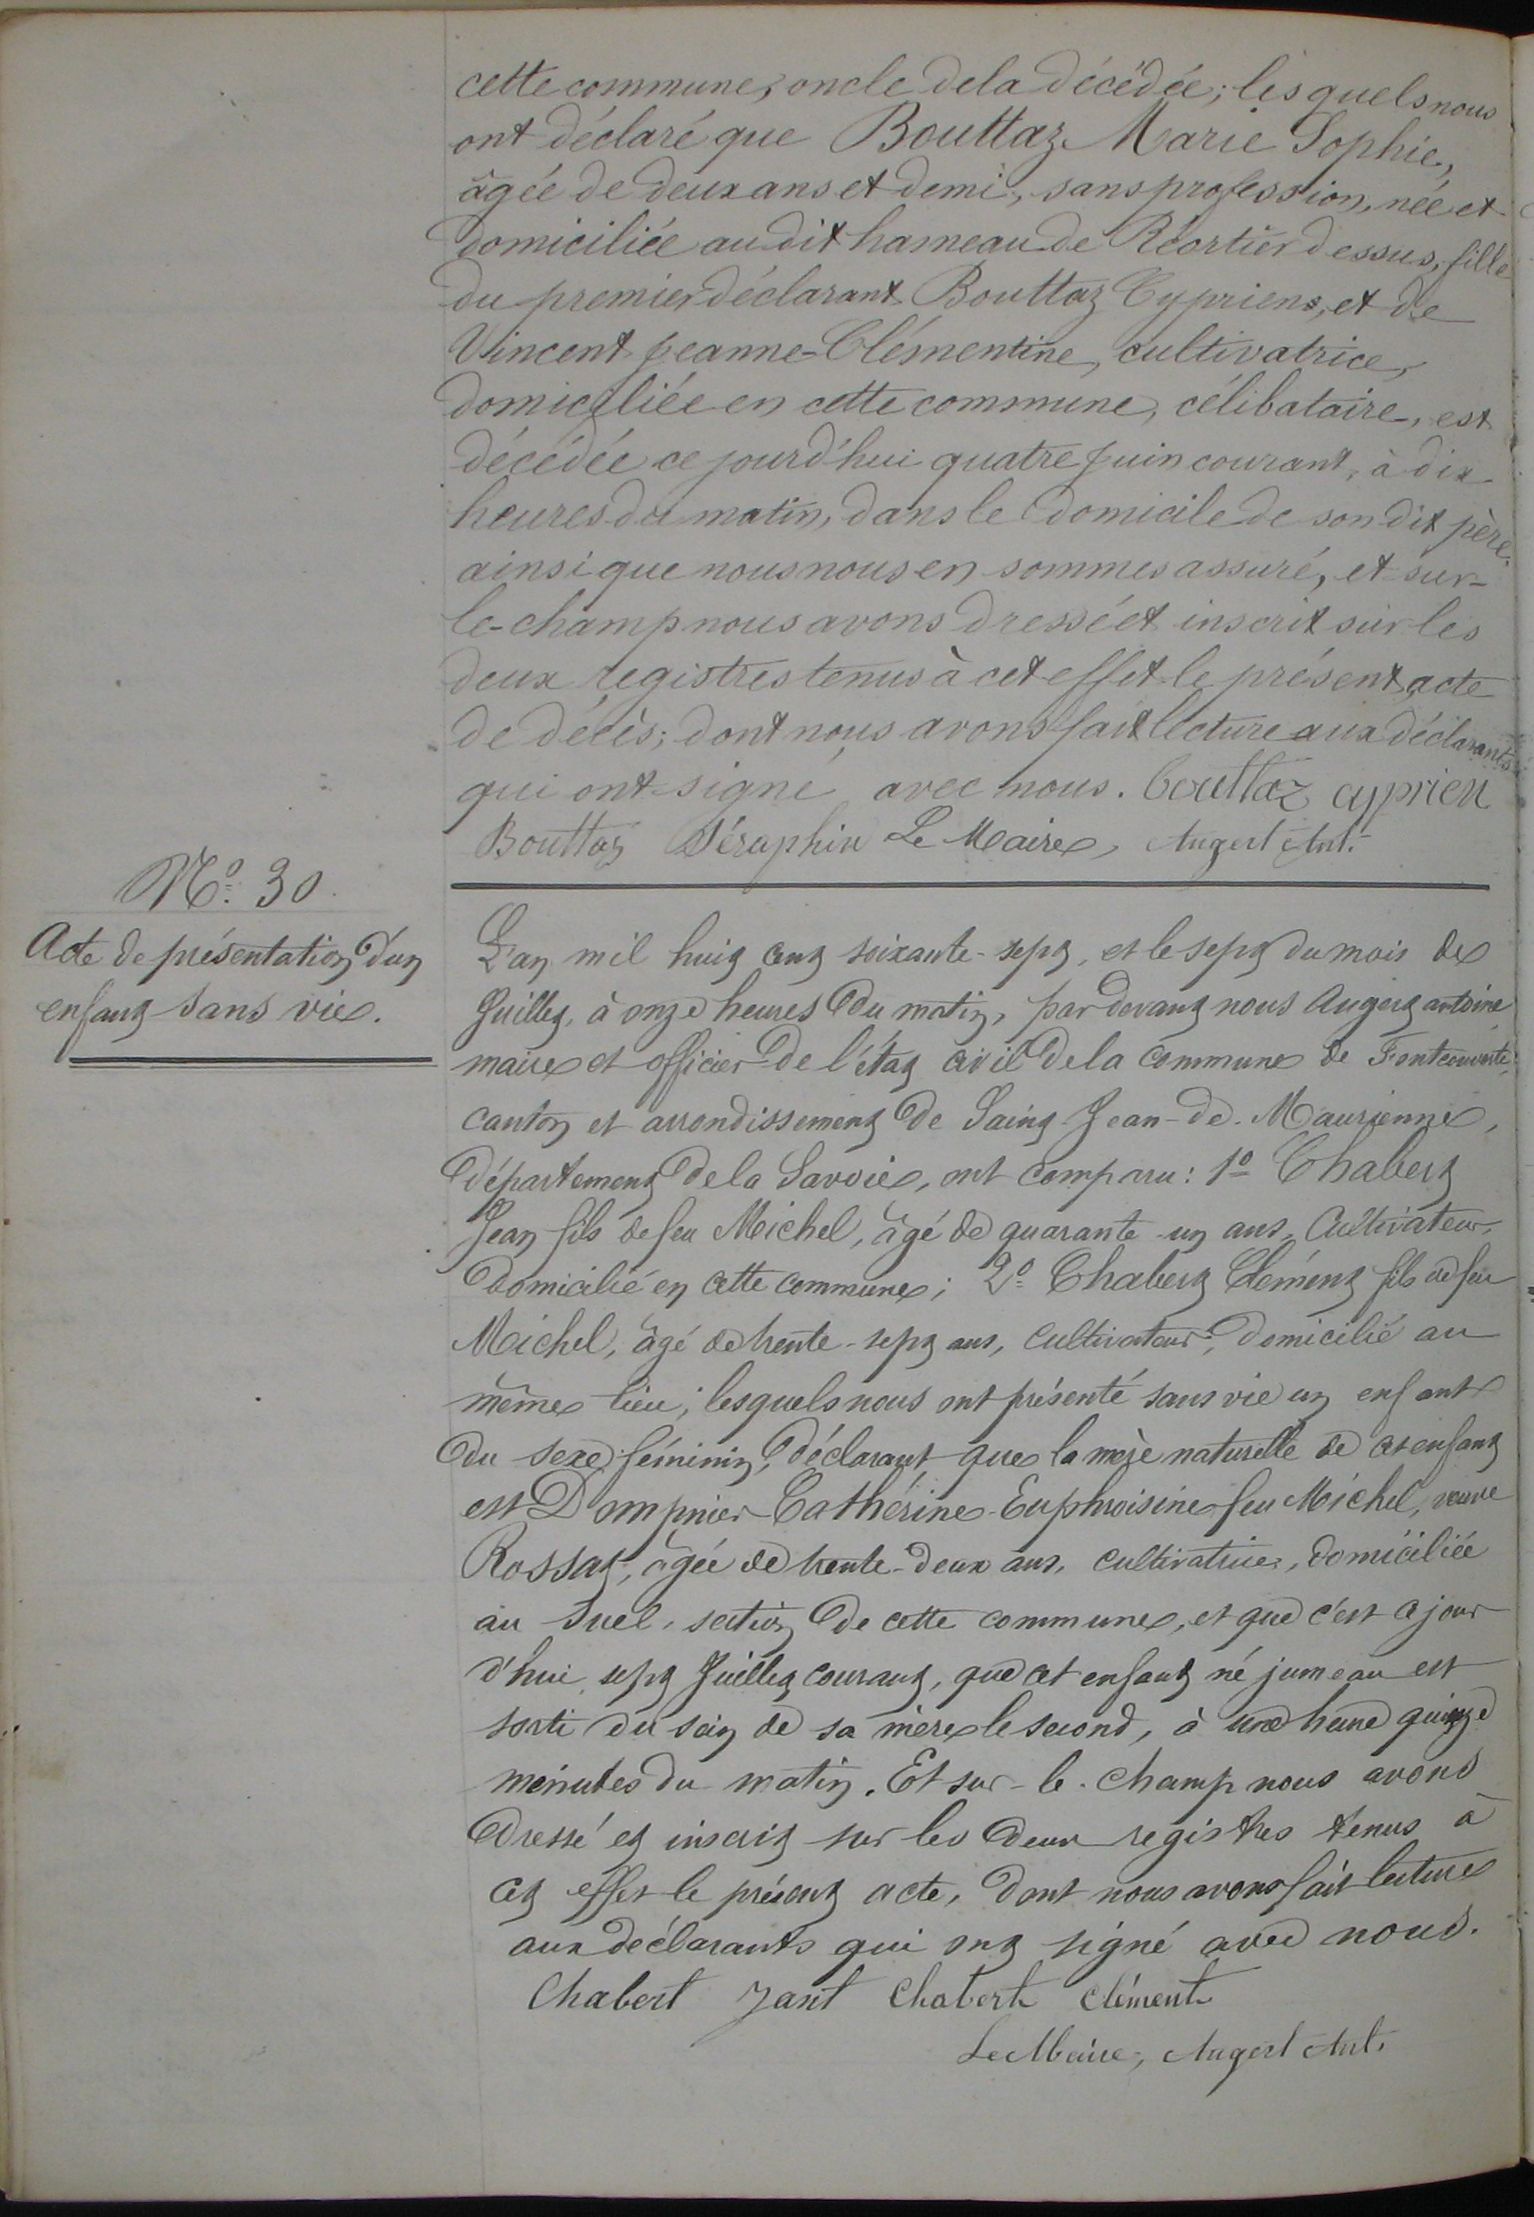 cette commune, oncle de la décédée; lesquels nous
ont déclaré que Bouttaz Marie Sophie,
âgée de deux ans et demi, sans profession, née et
domiciliée au dit hameau de Réortier dessus, fille
du premier déclarant Bouttaz Cyprien, et de
Vincent Jeanne-Clémentine, cultivatrice,
domiciliée en cette commune, célibataire, est
décédée ce jourd'hui quatre Juin courant, à dix
heures du matin, dans le domicile de son dit père.
ainsi que nous nous en sommes assuré, et sur-
le-champ nous avons dressé et inscrit sur les
deux registres tenus à cet effet le présent acte
de décès; dont nous avons fait lecture aux déclarants
qui ont signé avec nous. bouttaz cyprien
Bouttaz Séraphin Le Maire, Augert Ant.
N.º 30.
Acte de présentation d'un
enfant sans vie.
L'an mil huit cent soixante-sept, et le sept du mois de
Juillet, à onze heures du matin, par devant nous Augert antoine
maire et officier de l'état civil de la commune de Fontcouverte,
canton et arrondissement de Saint-Jean-de-Maurienne,
département de la Savoie, ont comparu: 1º Chabert
Jean fils de feu Michel, âgé de quarante-un ans, Cultivateur,
domicilié en cette commune; 2º Chabert Clément fils de feu
Michel, âgé de trente-sept ans, cultivateur, domicilié au
même lieu; lesquels nous ont présenté sans vie un enfant
du sexe féminin, déclarant que la mère naturelle de cet enfant
est Dompnier Cathérine-Euphroisine feu Michel, veuve
Rossat, âgée de trente-deux ans, cultivatrice, domiciliée
au Suel, section de cette commune, et que c'est ce jour
d'hui sept Juillet courant, que cet enfant né jumeau est
sorti du sein de sa mère le second, à une heure quinze
minutes du matin. Et sur-le-champ nous avons
dressé et inscrit sur les deux registres tenus à
cet effet le présent acte, dont nous avons fait lecture
aux déclarants qui ont signé avec nous.
Chabert Chabert Clément
Le Maire, Augert Ant.